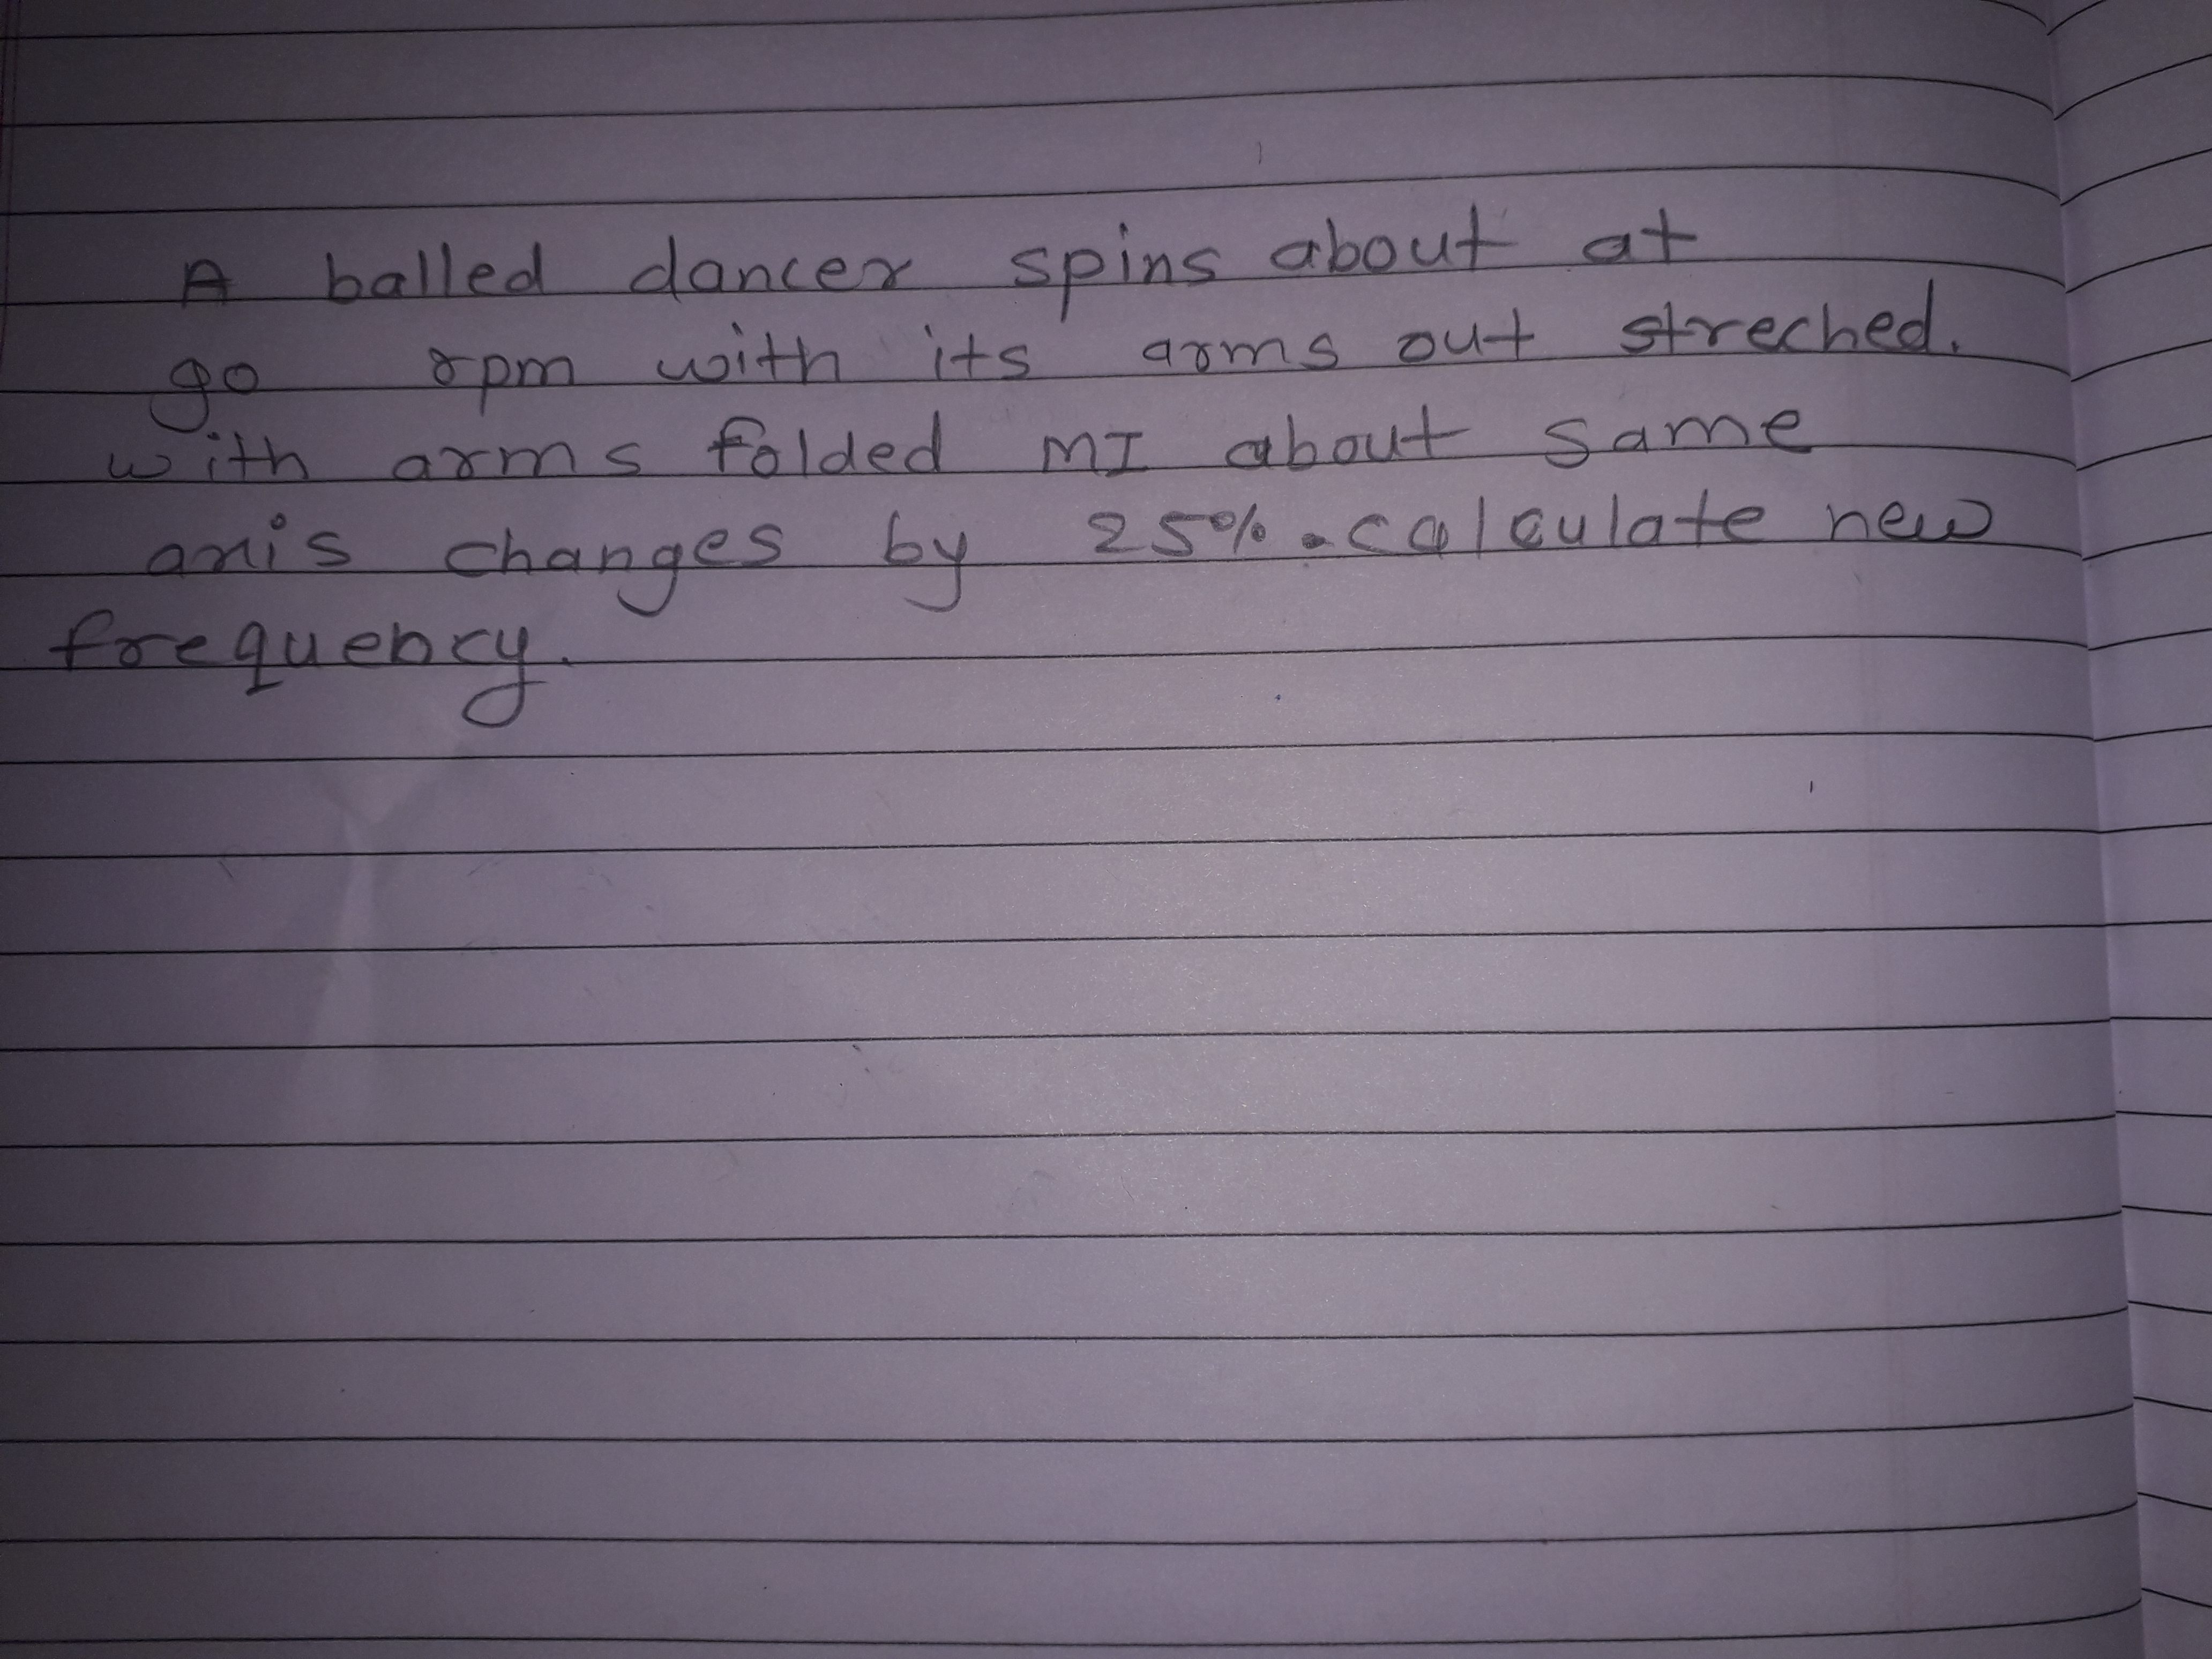 A balled dancer spins about at
90 rpm with its arms out streched.
with arms folded MI about same
axis changes by 25%. calculate new
frequency.